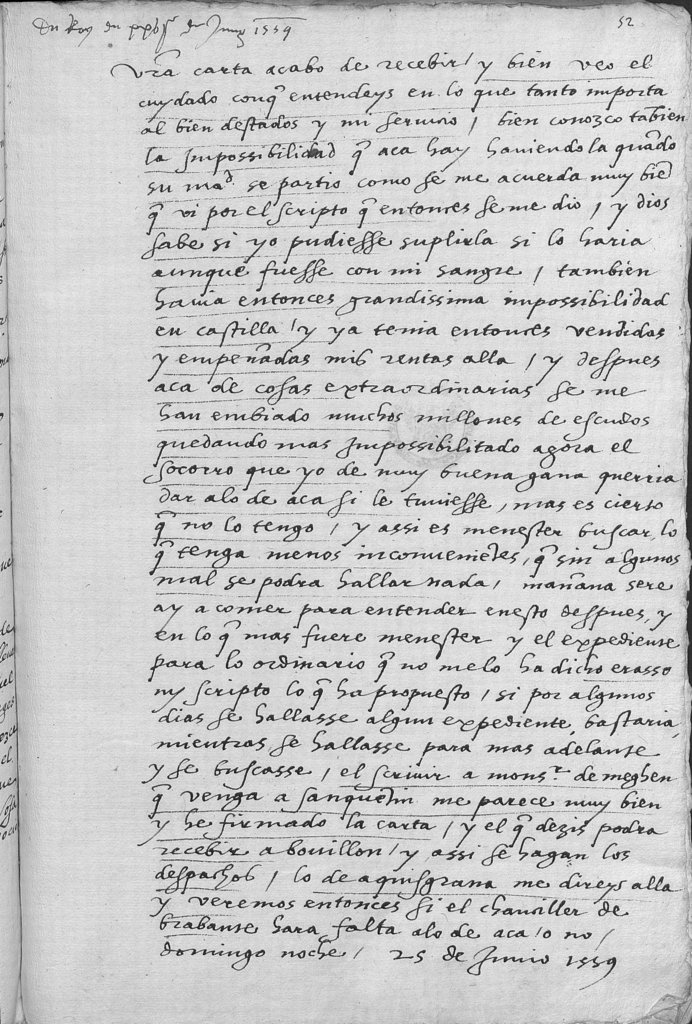 Du Roy du de Juing 1559
52
Vr̃a carta acabo de recebir / y bien veo el
cuydado conq̃ entendeys en lo que tanto importa
al bien destados y mi servicio / bien conozco tãbien
la Impossibilidad q̃ aca hay haviendola quãdo
su mad. se partio como se me acuerda muy biẽ
q̃ vi por el scripto q̃ entonces se me dio / y dios
sabe si yo pudiesse suplirla si lo haria
aunque fuesse con mi sangre / tambien
havia entonces grandissima impossibilidad
en castilla / y ya tenia entonces vendidas
y empeñadas mis rentas alla / y despues
aca de cosas extraordinarias se me
han embiado muchos millones de escudos
quedando mas Impossibilitado agora el
socorro que yo de muy buena gana querria
dar alo de aca si le tuviesse, mas es cierto
q̃ no lo tengo / y assi es menester buscar lo
q̃ tenga menos inconvenietes, q̃ sin algunos
mal se podra hallar nada / mañana sere
ay a comer para entender enesto despues, y
en lo q̃ mas fuere menester y el expediente
para lo ordinario q̃ no melo ha dicho erasso
ny scripto lo q̃ ha propuesto / si por algunos
dias se hallasse algun expediente, bastaria,
mientras se hallasse para mas adelante
y se buscasse / el scrivir a monsr. de meghen
q̃ venga a sanquetin me parece muy bien
y he firmado la carta / y el q̃ dezis podra
recebir a bouillon / y assi se hagan los
despachos / lo de aquisgrana me direys alla
y veremos entonces si el chanciller de
brabante hara falta alo de aca / o no /
domingo noche / 25 de Junio 1559